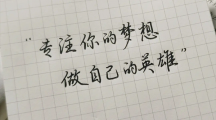 “专注你的梦想
做自己的英雄”